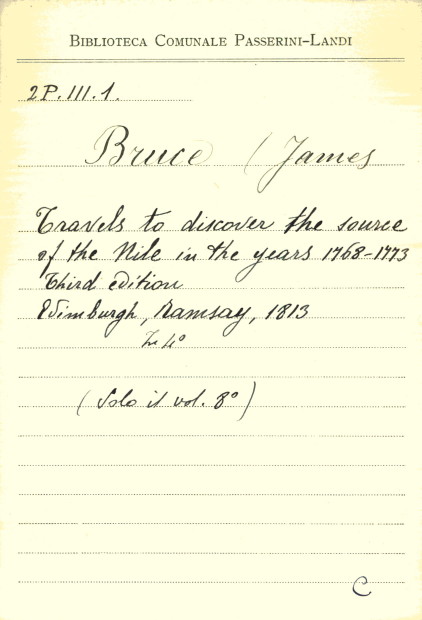 BIBLIOTECA COMUNALE PASSERINI-LANDI
2P.III.1.
Bruce (James
Travels to discover the source
of the Nile in the years 1768-1773
Third edition
Edimburgh, Ramsay, 1813
In 4º
(Solo il vol. 8º)
C